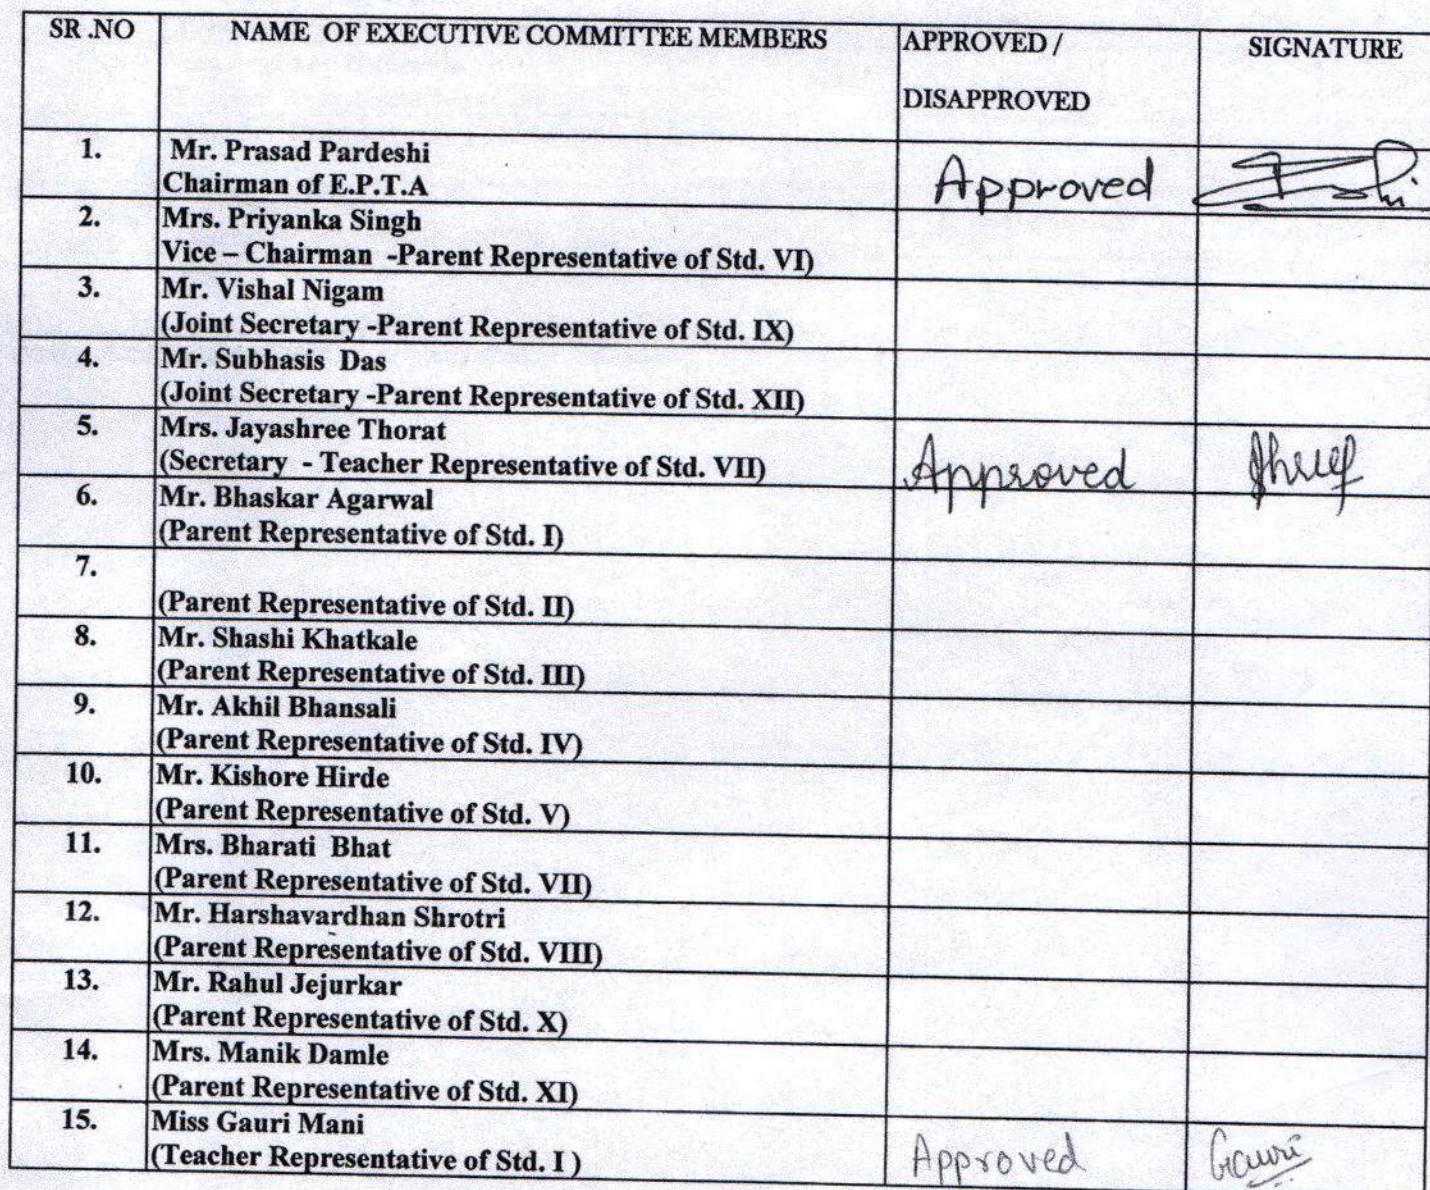 SR .NO NAME OF EXECUTIVE COMMITTEE MEMBERS APPROVED / DISAPPROVED SIGNATURE
1. Mr. Prasad Pardeshi
Chairman of E.P.T.A Approved
2. Mrs. Priyanka Singh
Vice – Chairman -Parent Representative of Std. VI)
3. Mr. Vishal Nigam
(Joint Secretary -Parent Representative of Std. IX)
4. Mr. Subhasis Das
(Joint Secretary -Parent Representative of Std. XII)
5. Mrs. Jayashree Thorat
(Secretary - Teacher Representative of Std. VII) Approved
6. Mr. Bhaskar Agarwal
(Parent Representative of Std. I)
7.
(Parent Representative of Std. II)
8. Mr. Shashi Khatkale
(Parent Representative of Std. III)
9. Mr. Akhil Bhansali
(Parent Representative of Std. IV)
10. Mr. Kishore Hirde
(Parent Representative of Std. V)
11. Mrs. Bharati Bhat
(Parent Representative of Std. VII)
12. Mr. Harshavardhan Shrotri
(Parent Representative of Std. VIII)
13. Mr. Rahul Jejurkar
(Parent Representative of Std. X)
14. Mrs. Manik Damle
(Parent Representative of Std. XI)
15. Miss Gauri Mani
(Teacher Representative of Std. I ) Approved Gauri